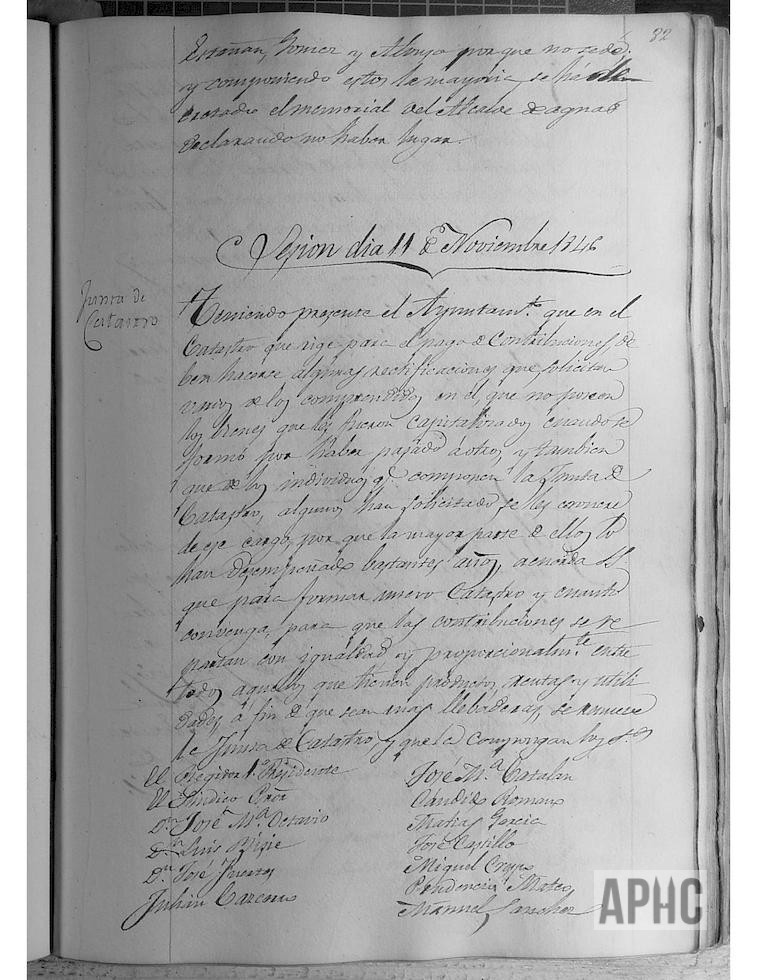 82
Estañan, Gomez y Alonso porque no se dé,
y componiendo estos la mayoria, se há de
cretado el memorial del Alcalde de aguas
declarando no haber lugar.
Sesion dia 11 de Noviembre 1846
Junta de
Catastro
Teniendo presente el Ayuntamto. que en el
Catastro que rige para el pago de Contribuciones, de
ben hacerse algunas rectificaciones que solicitan
varios de los comprendidos en él, que no poseen
los bienes que les fueron capitalizados cuando se
formó por haber pasado á otros, y tambien
que de los individuos qe. componen la Junta de
Catastro, algunos han solicitado se les exonere
de ese cargo, por que la mayor parte de ellos lo
han desempeñado bastantes años, acuerda
que para formar nuevo Catastro y cuanto
convenga, para que las contribuciones se re
partan con igualdad y proporcionalmte. entre
todos aquellos que tienen productos, rentas y utili
dades, á fin de que sean mas llebaderas, se renueve
la Junta de Catastro, y que la compongan los Sres
El Regidor 1º Presidente
El Sindico Pror
Dn. José Ma. Octavio
Dn. Luis
Dn. José Juarez
Julian
José Ma. Catalan
Cándido Romano
Matias Garcia
José Castillo
Miguel Crespo
Prudencio Mateo
Manuel Sanchez
APHC